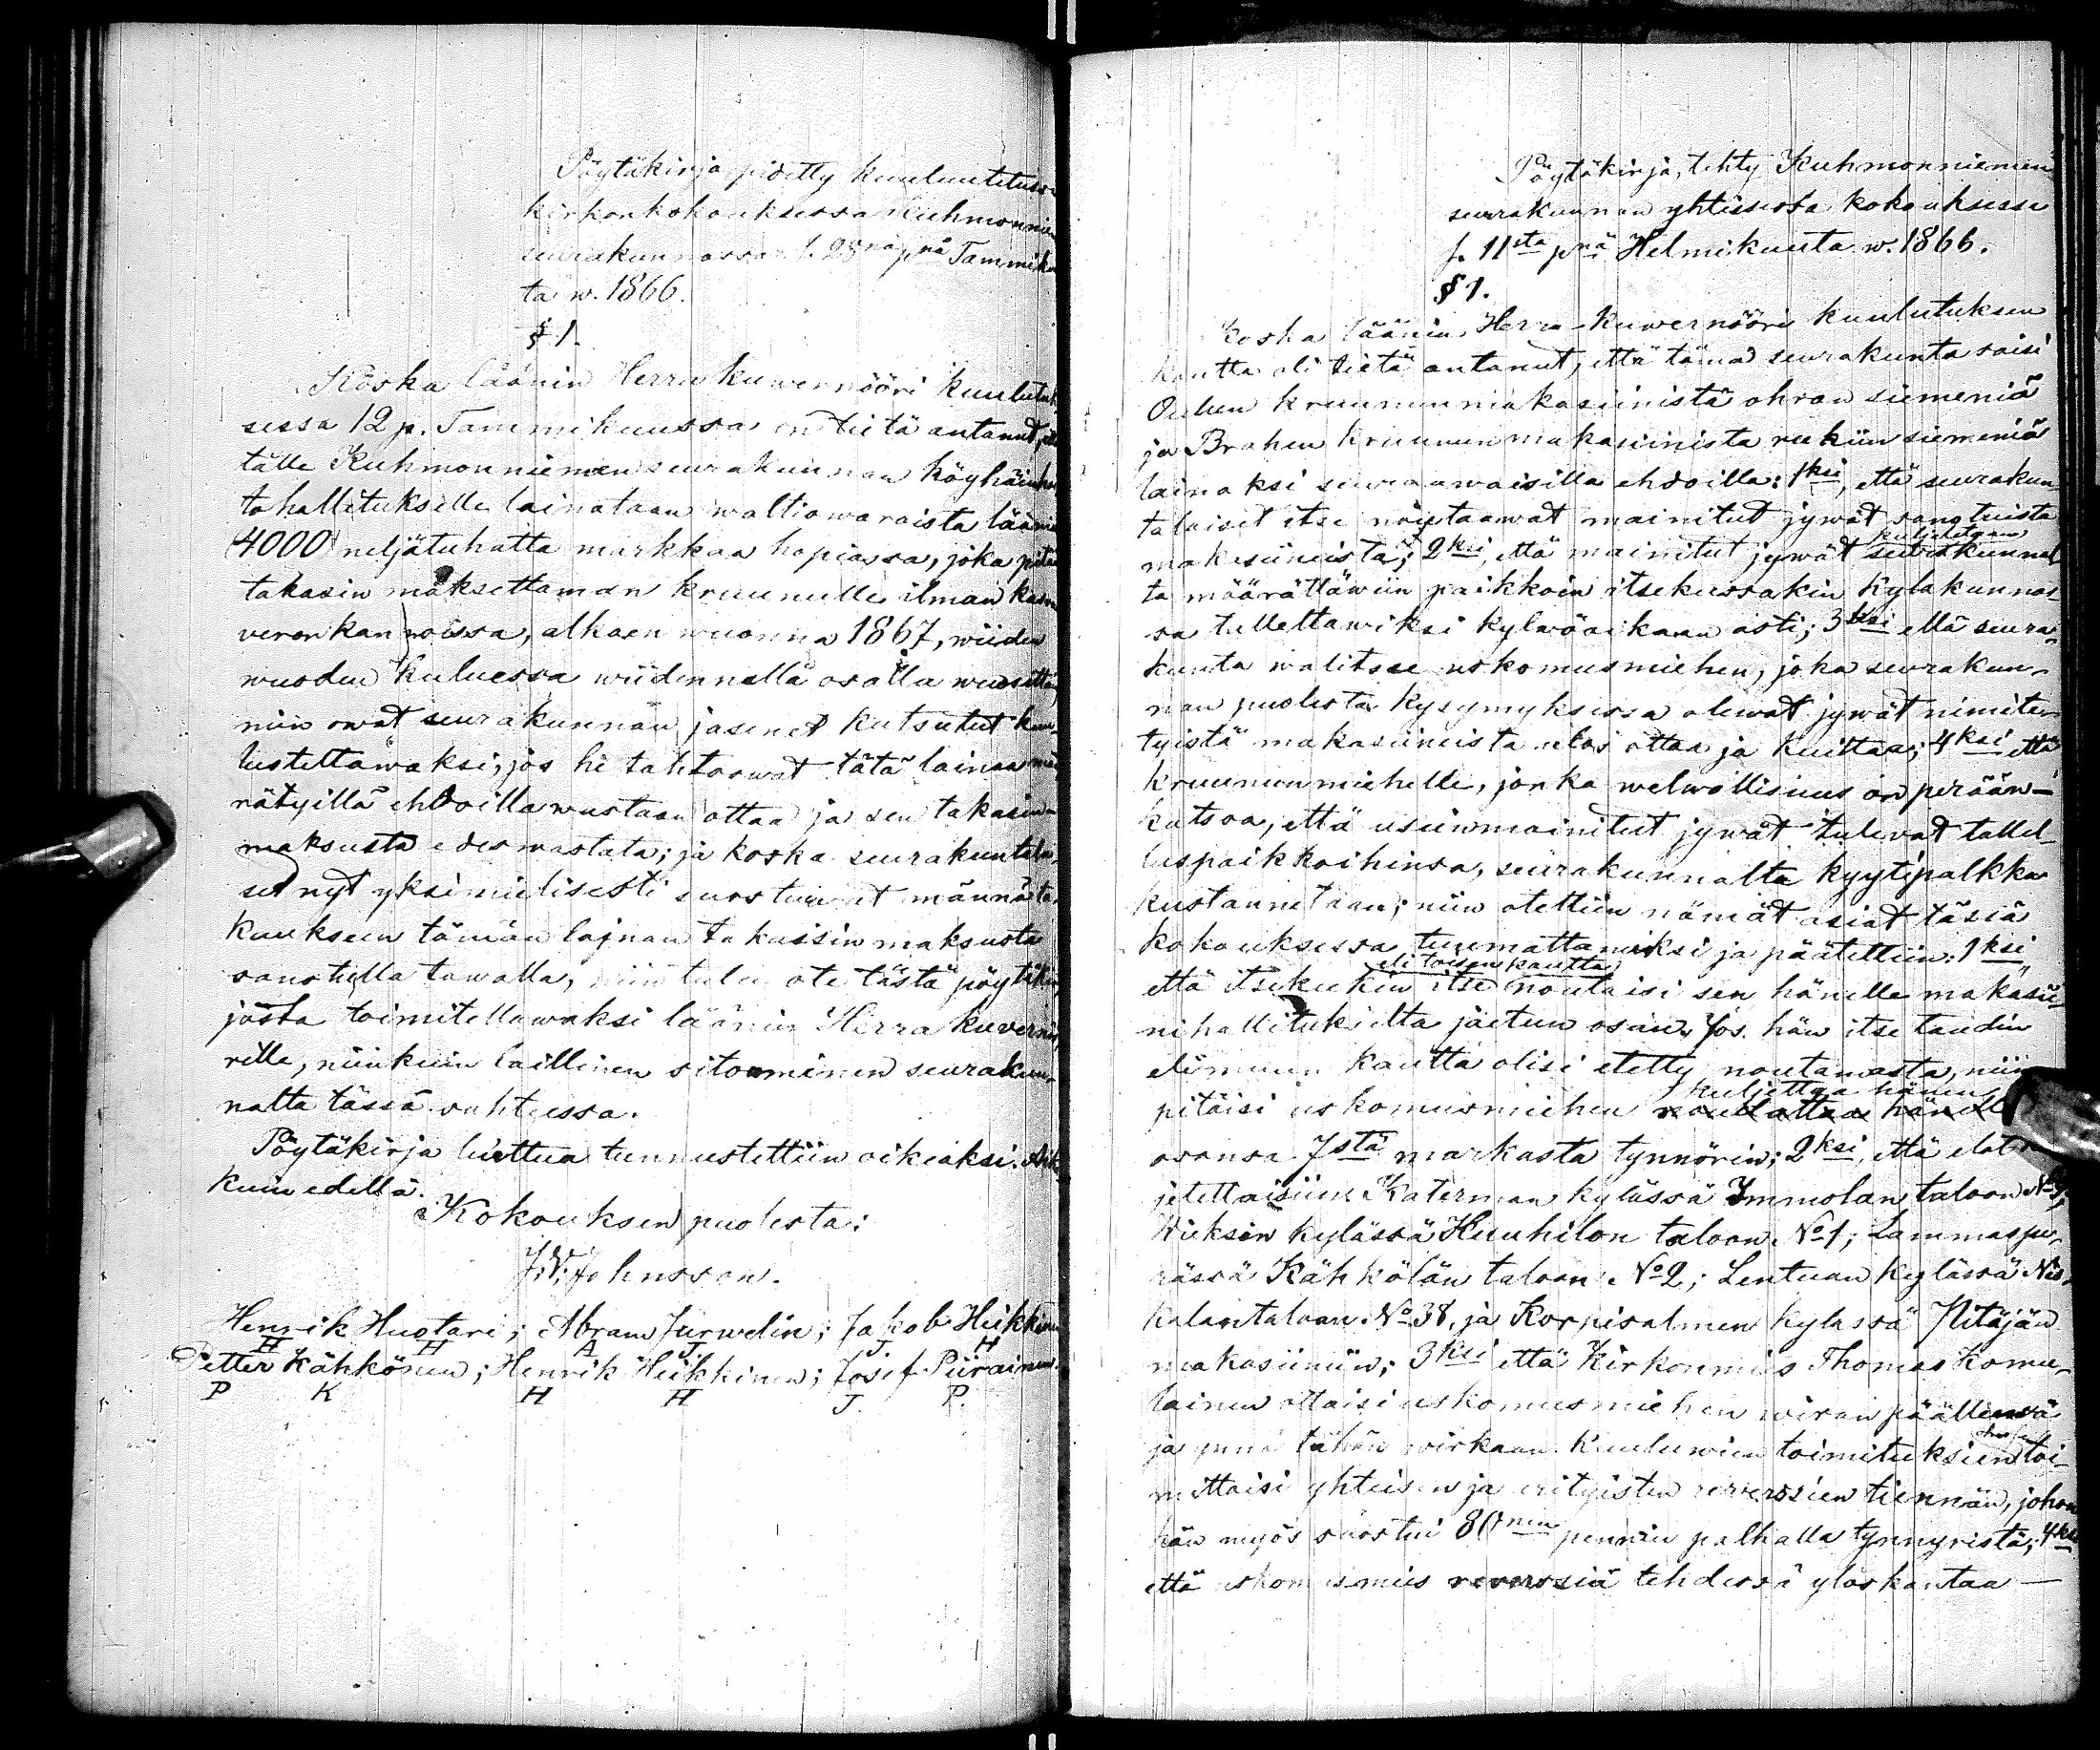 Pöytäkirja pidetty kuulutetussa
kirkonkokouksessa Kuhmonnie
seurakunnassa s. 28nä pnä Tammiku
ta w. 1866.
§ 1.
Koska läänin Herra kuwernööri kuulutuk
sessa 12 p. Tammikuussa on tietä antanut, että
tälle Kuhmonniemen seurakunnan köyhäinhoi
tohallitukselle lainataan waltiowaroista läänin
(4000) neljätuhatta markkaa hopiassa, joka pitää
takasin maksettaman kruunulle ilman kasvu
veron kannoissa, alkaen wuonna 1867, wiiden
wuoden kuluessa wiidennellä osalla wuosittain,
niin owat seurakunnan jasenet kutsutut kuu
lusteltawaksi, jos he tahtoowat tätä lainaa mää
rätyillä ehdoilla wastaan ottaa ja sen takasin
maksusta edeswastata; ja koska seurakuntalai
set nyt yksimielisesti suostuiwat männä ta
kaukseen tämän lajnan takaisin maksusta
sanotulla tawalla, niin tulee ote tästä pöytäkir
jasta toimitettawaksi läänin Herra kuvernöö
rille, niinkuin laillinen sitouminen seurakun
nalta tässä suhteessa.
Pöytäkirja luettua tunnustettiin oikiaksi. Aika
kuin edellä.
Kokouksen puolesta:
J.W. Johnsson.
Henrik Huotari; Abram Jurwelin; Jakob Heikkinen
H H A J J H
Petter Kähkönen; Henrik Heikkinen; Josef Piirainen.
P K H H J. P.
Pöytäkirja, tehty Kuhmonniemen
seurakunnan yhtisessä kokouksessa
s. 11sta pnä Helmikuuta w. 1866.
§ 1.
Koska läänin Herra-kuwernööri kuulutuksen
kautta oli tietä antanut, että tämä seurakunta saisi
Oulun kruununmakasiinista ohran siemeniä
ja Brahen kruunun makasiinista rukiin siemeniä
lainaksi seuraawaisilla ehdoilla: 1ksi, että seurakun
talaiset itse noutaawat mainitut jywät sanotuista
makasiineista; 2ksi, että mainitut jywät kuljetetaan seurakunnal
ta määrättäwiin paikkoin itsekussakin kyläkunnas
sa tallettawiksi kylwöaikaan asti; 3ksi että seura
kunta walitsee uskomusmiehen, joka seurakun
nan puolesta kysymyksessa olewat jywät nimite
tyistä makasiineista ulos ottaa ja kuittaa; 4ksi että
kruununmiehelle, jonka welwollisuus on perään
katsoa, että useinmainitut jywät tulewat tallel
luspaikkoihinsa, seurakunnalta kyytipalkka
kustannetaan; niin otettiin nämät asiat täsiä
kokouksessa tuumattawiksi ja päätettiin: 1ksi
että itsekukin itse eli toisen kautta noutaisi sen hänelle makasii
nihallitukselta jäetun osan. Jos hän itse taudin
eli muun kautta olisi etetty noutamasta, niin
pitäisi uskomusmiehen kuljettaa hänen
osansa 7stä markasta tynnörin; 2ksi, että elot
jetettaisiin Katerman kylässä Immolan taloon No
Wieksin kylässä Huuhilon taloon No 1; Lammaspe
rässä Kähkölän taloon No 2; Lentuan kylässä Nis
kalantaloon No 38, ja Korpisalmen kylässä Pitäjän
makasiiniin; 3ksi että kirkonmies Thomas Komu
lainen ottaisi uskomusmiehen wiran päällensä
ja ynnä tähän wirkaan kuuluwien toimituksien toi
mittaisi yhteisen ja erityisten reverssien tiennän, johon
hän myös suostui 80nen pennin palkalla tynnyristä; 4ksi
että uskomusmies reverssiä tehdessä ylöskantaa —